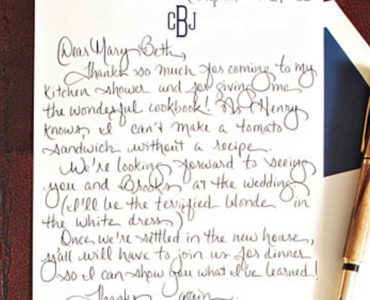 CBJ
Dear Mary Beth,
Thanks so much for coming to my
kitchen shower and for giving me
the wonderful cookbook! As Henry
knows, I can't make a tomato
sandwich without a recipe.
We're looking forward to seeing
you and Brooks at the wedding.
(I'll be the terrified blonde in
the white dress.)
Once we're settled in the new house,
y'all will have to join us for dinner
so I can show you what I've learned!
Thanks again,